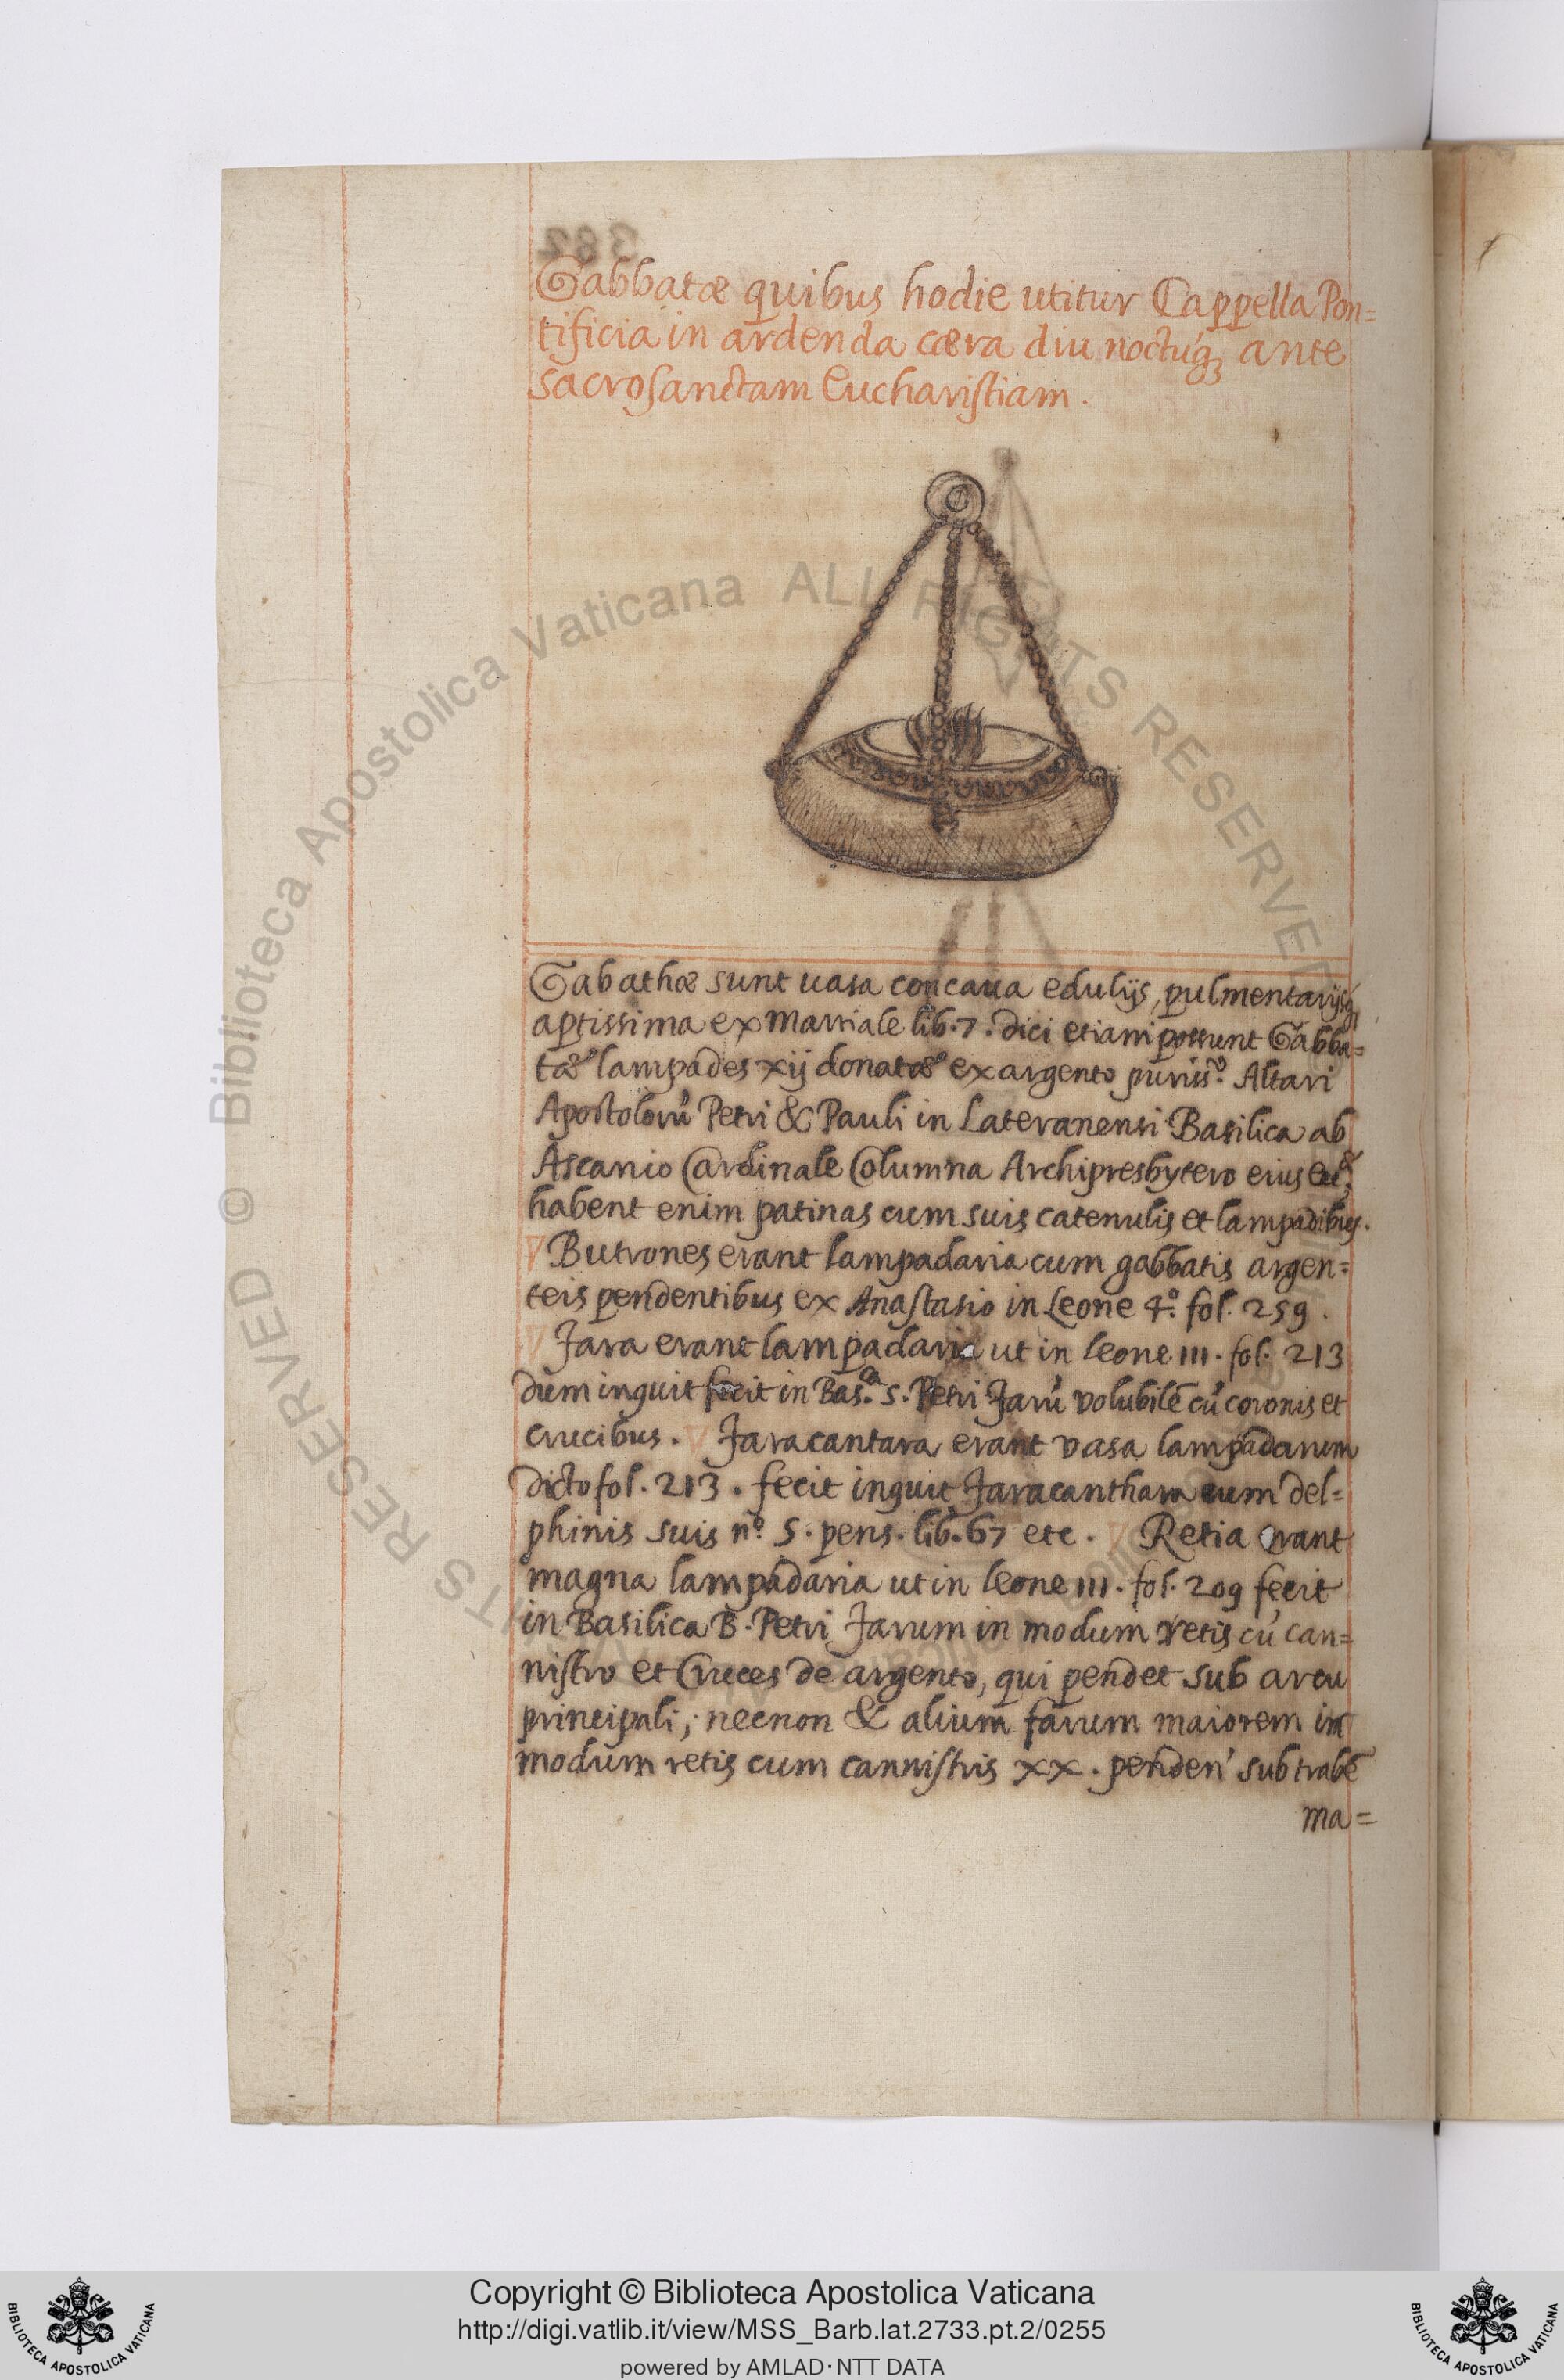 Gabbatæ quibus hodie utitur Cappella Pon=
tificia in ardenda cæra diu noctuq́ꝫ ante
sacrosanctam Eucharistiam.
Gabathæ sunt uasa concaua edulijs, pulmentarijsqꝫ
aptissima ex Martiale lib. 7. dici etiam possunt Gabba=
tæ lampades xij donatæ ex argento puriss.º Altari
Apostolorũ Petri & Pauli in Lateranensi Basilica ab
Ascanio Cardinale Columna Archipresbytero eius
habent enim patinas cum suis catenulis et lampadibus.
Butrones erant lampadaria cum gabbatis argen=
teis pendentibus ex Anastasio in Leone 4.º fol. 259.
Fara erant lampadaria ut in leone III. fol. 213
dum inquit fecit in Bas.ª S. Petri Farũ volubilẽ cũ coronis et
crucibus. Faracantara erant vasa lampadarum
dicto fol. 213. fecit inquit Faracanthara cum del=
phinis suis nº. 5. pens. lib. 67 etc. Retia erant
magna lampadaria ut in leone III. fol. 209 fecit
in Basilica B. Petri Farum in modum retis cũ can=
nistro et Cruces de argento, qui pendet sub arcu
principali; necnon & alium farum maiorem in
modum retis cum cannistris xx. penden' sub trabẽ
ma=
382
Biblioteca Apostolica Vaticana ALL RIGHTS RESERVED ©
Copyright © Biblioteca Apostolica Vaticana
http://digi.vatlib.it/view/MSS_Barb.lat.2733.pt.2/0255
powered by AMLAD·NTT DATA
BIBLIOTECA APOSTOLICA VATICANA
BIBLIOTECA APOSTOLICA VATICANA